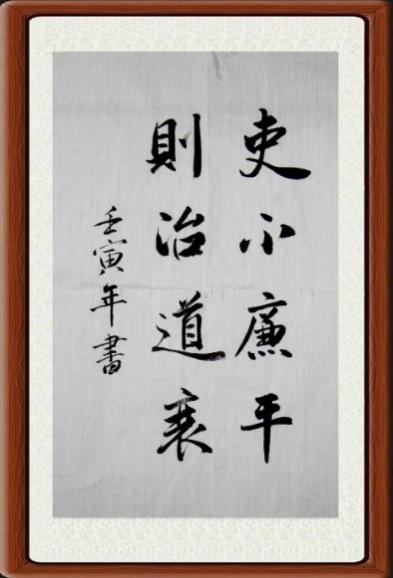 吏不廉平
則治道衰
壬寅年書